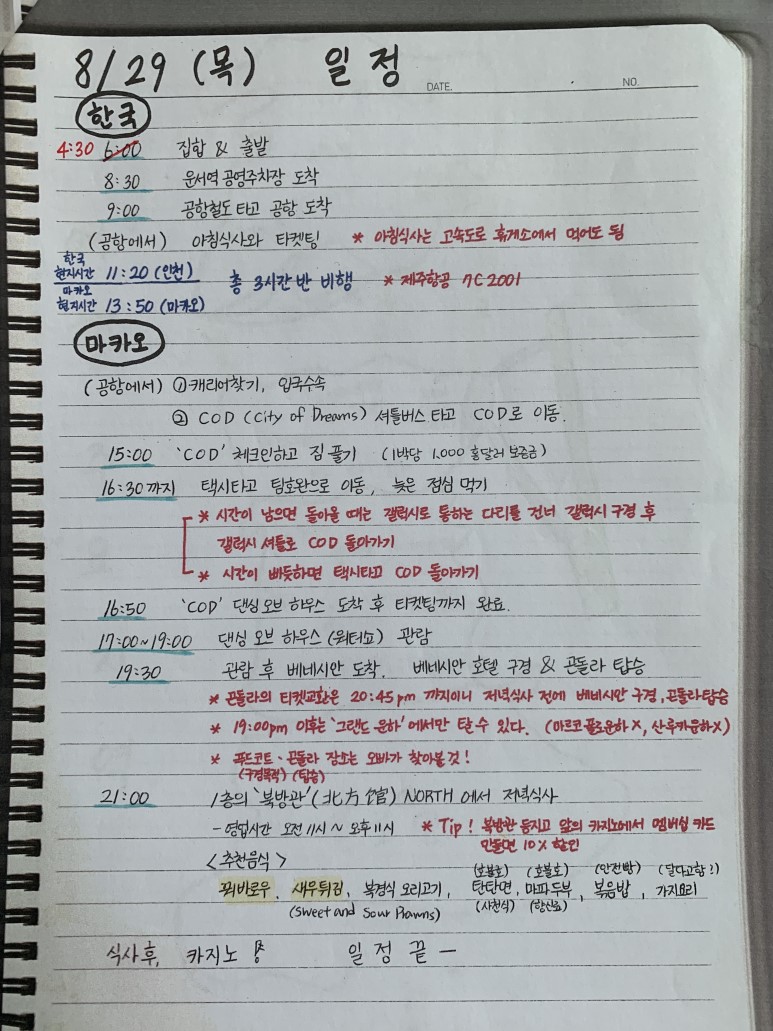 8/29 (목) 일정
DATE. NO.
한국
4:30 6:00 집합 & 출발
8:30 운서역 공영주차장 도착
9:00 공항철도 타고 공항 도착
(공항에서) 아침식사와 타켓팅 * 아침식사는 고속도로 휴게소에서 먹어도 됨
한국
현지시간 11:20 (인천)
총 3시간 반 비행 * 제주항공 7C2001
마카오
현지시간 13:50 (마카오)
마카오
(공항에서) ① 캐리어찾기, 입국수속
② COD (City of Dreams) 셔틀버스 타고 COD로 이동.
15:00 'COD' 체크인하고 짐 풀기 (1박당 1,000 홍달러 보증금)
16:30 까지 택시타고 팀호완으로 이동, 늦은 점심 먹기
* 시간이 남으면 돌아올 때는 갤럭시로 통하는 다리를 건너 갤럭시 구경 후
갤럭시 셔틀로 COD 돌아가기
* 시간이 빠듯하면 택시타고 COD 돌아가기
16:50 'COD' 댄싱 오브 하우스 도착 후 티켓팅까지 완료.
17:00~19:00 댄싱 오브 하우스 (워터쇼) 관람
19:30 관람 후 베네시안 도착. 베네시안 호텔 구경 & 곤돌라 탑승
* 곤돌라의 티켓교환은 20:45pm 까지이니 저녁식사 전에 베네시안 구경, 곤돌라탑승
* 19:00pm 이후는 '그랜드 운하'에서만 탈 수 있다. (마르코폴로운하 X, 산루카운하X)
* 푸드코트·곤돌라 장소는 오빠가 찾아볼 것!
(구경목적) (탑승)
21:00 1층의 '북방관' (北方館) NORTH 에서 저녁식사
- 영업시간 오전 11시 ~ 오후 11시 * Tip! 북방관 등지고 앞의 카지노에서 멤버쉽 카드
만들면 10% 할인
<추천음식>
(호불호) (호불호) (안전빵) (달다고함?)
꿔바로우, 새우튀김, 북경식 오리고기, 탄탄면, 마파두부, 볶음밥, 가지요리
(Sweet and Sour Prawns) (사천식) (향신료)
식사후, 카지노 일정 끝 —